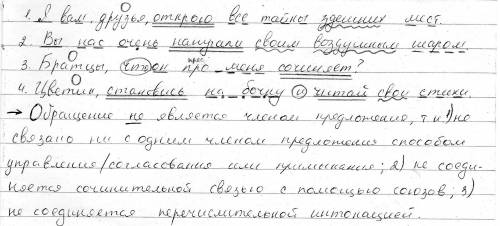 1. Я вам, друзья, открою все тайны здешних мест.
2. Вы нас очень напугали своим воздушным шаром.
3. Братцы, что он про меня сочиняет?
4. Цветик, становись на бочку и читай свои стихи.
→ Обращение не является членом предложения, т.к. 1) не
связано ни с одним членом предложения способом
управления/согласования или примыкания; 2) не соеди-
няется сочинительной связью с помощью союзов; 3)
не соединяется перечислительной интонацией.